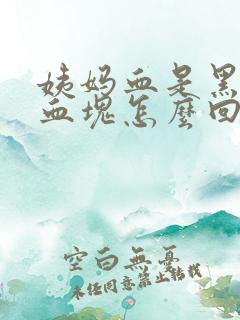 姨妈血是黑
血块怎麼回
空白無憂
未经同意禁止转载